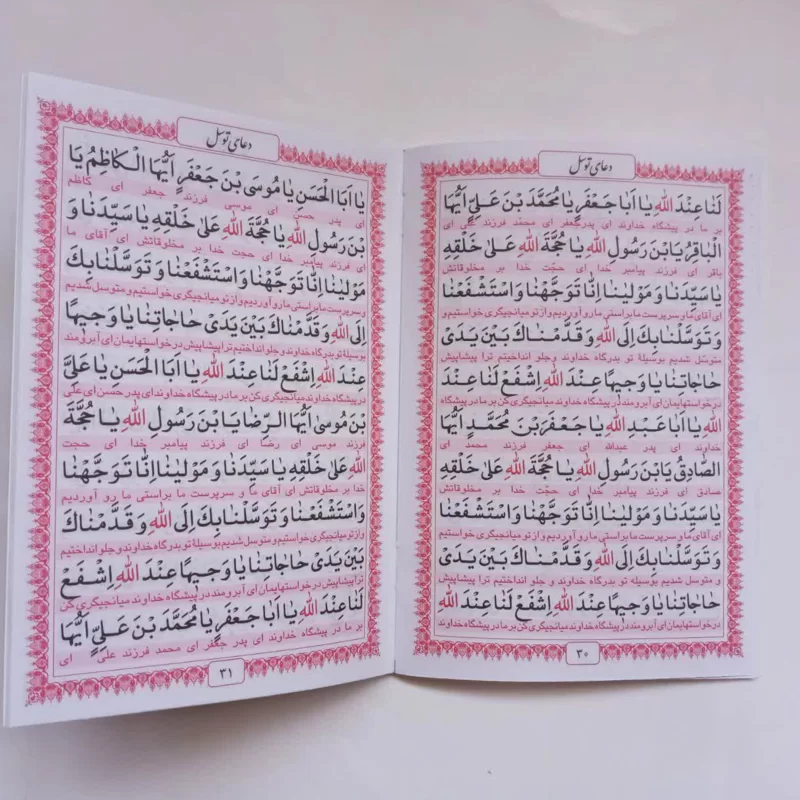 دعای توسل
لَنا عِنْدَ اللهِ یا اَبا جَعْفَرٍ یا مُحَمَّدَ بْنَ عَلِیٍّ اَیُّهَا
بر ما در پیشگاه خداوند ای پدرجعفر ای محمد فرزند علی ای
الْباقِرُ یَابْنَ رَسُولِ اللهِ یا حُجَّةَ اللهِ عَلیٰ خَلْقِهِ
باقر ای فرزند پیامبر خدا ای حجّت خدا بر مخلوقاتش
یا سَیِّدَنا وَ مَوْلینا اِنّا تَوَجَّهْنا وَ اسْتَشْفَعْنا
ای آقای ما و سرپرست ما براستی ما رو آوردیم و از تو میانجیگری خواستیم و
وَ تَوَسَّلْنا بِکَ اِلَی اللهِ وَ قَدَّمْناکَ بَیْنَ یَدَیْ
متوسل شدیم بوسیلهٔ تو بدرگاه خداوند و جلو انداختیم ترا پیشاپیش
حاجاتِنا یا وَجیهاً عِنْدَ اللهِ اِشْفَعْ لَنا عِنْدَ
درخواستهایمان ای آبرومند در پیشگاه خداوند میانجیگری کن بر ما در پیشگاه
اللهِ یا اَبا عَبْدِ اللهِ یا جَعْفَرَ بْنَ مُحَمَّدٍ اَیُّهَا
خداوند ای پدر عبدالله ای جعفر فرزند محمد ای
الصّادِقُ یَابْنَ رَسُولِ اللهِ یا حُجَّةَ اللهِ عَلیٰ خَلْقِهِ
صادق ای فرزند پیامبر خدا ای حجّت خدا بر مخلوقاتش
یا سَیِّدَنا وَ مَوْلینا اِنّا تَوَجَّهْنا وَ اسْتَشْفَعْنا
ای آقای ما و سرپرست ما براستی ما رو آوردیم و از تو میانجیگری خواستیم
وَ تَوَسَّلْنا بِکَ اِلَی اللهِ وَ قَدَّمْناکَ بَیْنَ یَدَیْ
و متوسل شدیم بوسیله تو بدرگاه خداوند و جلو انداختیم ترا پیشاپیش
حاجاتِنا یا وَجیهاً عِنْدَ اللهِ اِشْفَعْ لَنا عِنْدَ اللهِ
درخواستهایمان ای آبرومند در پیشگاه خداوند میانجیگری کن بر ما در پیشگاه خداوند
۳۰
دعای توسل
یا اَبَا الْحَسَنِ یا مُوسَی بْنَ جَعْفَرٍ اَیُّهَا الْکاظِمُ یَا
ای پدر حسن ای موسی فرزند جعفر ای کاظم
بْنَ رَسُولِ اللهِ یا حُجَّةَ اللهِ عَلیٰ خَلْقِهِ یا سَیِّدَنا وَ
ای فرزند پیامبر خدا ای حجت خدا بر مخلوقاتش ای آقای ما
مَوْلینا اِنّا تَوَجَّهْنا وَ اسْتَشْفَعْنا وَ تَوَسَّلْنا بِکَ
و سرپرست ما براستی ما رو آوردیم و از تو میانجیگری خواستیم و متوسل شدیم
اِلَی اللهِ وَ قَدَّمْناکَ بَیْنَ یَدَیْ حاجاتِنا یا وَجیهاً
بوسیلهٔ تو بدرگاه خداوند و جلو انداختیم ترا پیشاپیش درخواستهایمان ای آبرومند
عِنْدَ اللهِ اِشْفَعْ لَنا عِنْدَ اللهِ یا اَبَا الْحَسَنِ یا عَلِیَّ
در پیشگاه خداوند میانجیگری کن بر ما در پیشگاه خداوند ای پدر حسن ای علی
بْنَ مُوسیٰ اَیُّهَا الرِّضا یَا بْنَ رَسُولِ اللهِ یا حُجَّةَ
فرزند موسی ای رضا ای فرزند پیامبر خدا ای حجت
اللهِ عَلیٰ خَلْقِهِ یا سَیِّدَنا وَ مَوْلینا اِنّا تَوَجَّهْنا
خدا بر مخلوقاتش ای آقای ما و سرپرست ما براستی ما رو آوردیم
وَ اسْتَشْفَعْنا وَ تَوَسَّلْنا بِکَ اِلَی اللهِ وَ قَدَّمْناکَ
و از تو میانجیگری خواستیم و متوسل شدیم بوسیلهٔ تو بدرگاه خداوند و جلو انداختیم
بَیْنَ یَدَیْ حاجاتِنا یا وَجیهاً عِنْدَ اللهِ اِشْفَعْ
ترا پیشاپیش درخواستهایمان ای آبرومند در پیشگاه خداوند میانجیگری کن
لَنا عِنْدَ اللهِ یا اَبا جَعْفَرٍ یا مُحَمَّدَ بْنَ عَلِیٍّ اَیُّهَا
بر ما در پیشگاه خداوند ای پدر جعفر ای محمد فرزند علی ای
۳۱